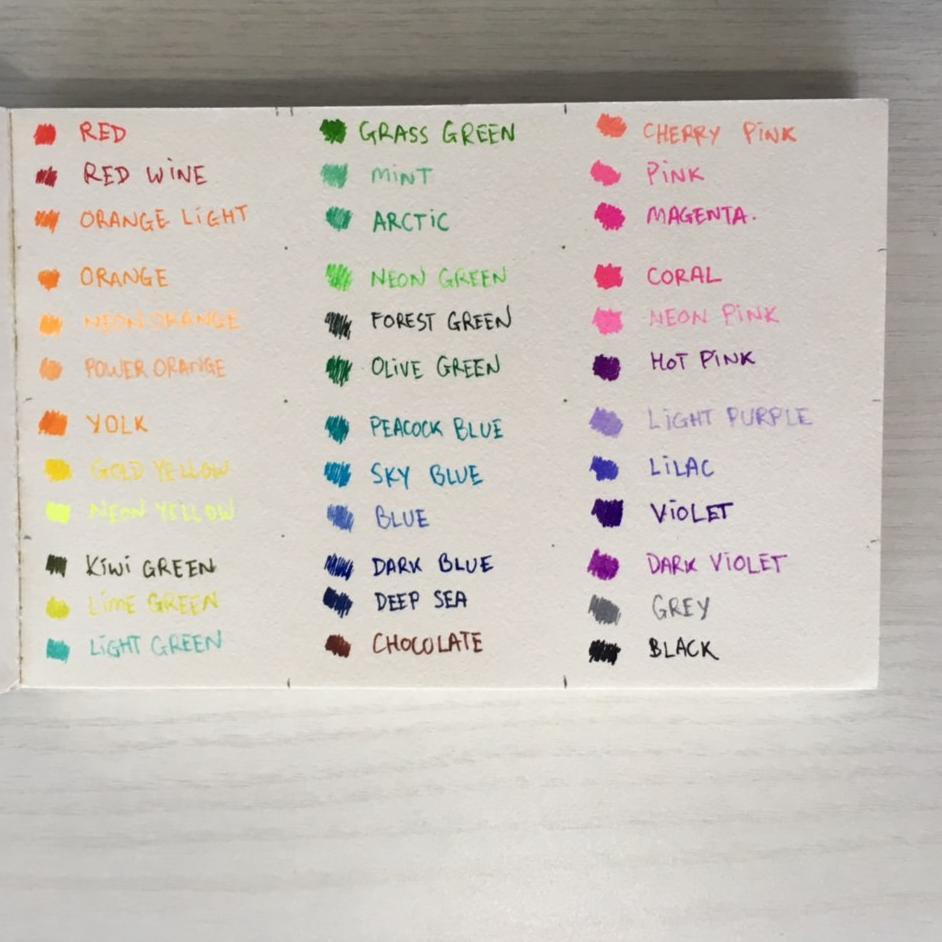 RED
RED WINE
ORANGE LIGHT
ORANGE
NEON ORANGE
POWER ORANGE
YOLK
GOLD YELLOW
NEON YELLOW
KIWI GREEN
LIME GREEN
LIGHT GREEN
GRASS GREEN
MINT
ARCTIC
NEON GREEN
FOREST GREEN
OLIVE GREEN
PEACOCK BLUE
SKY BLUE
BLUE
DARK BLUE
DEEP SEA
CHOCOLATE
CHERRY PINK
PINK
MAGENTA.
CORAL
NEON PINK
HOT PINK
LIGHT PURPLE
LILAC
VIOLET
DARK VIOLET
GREY
BLACK